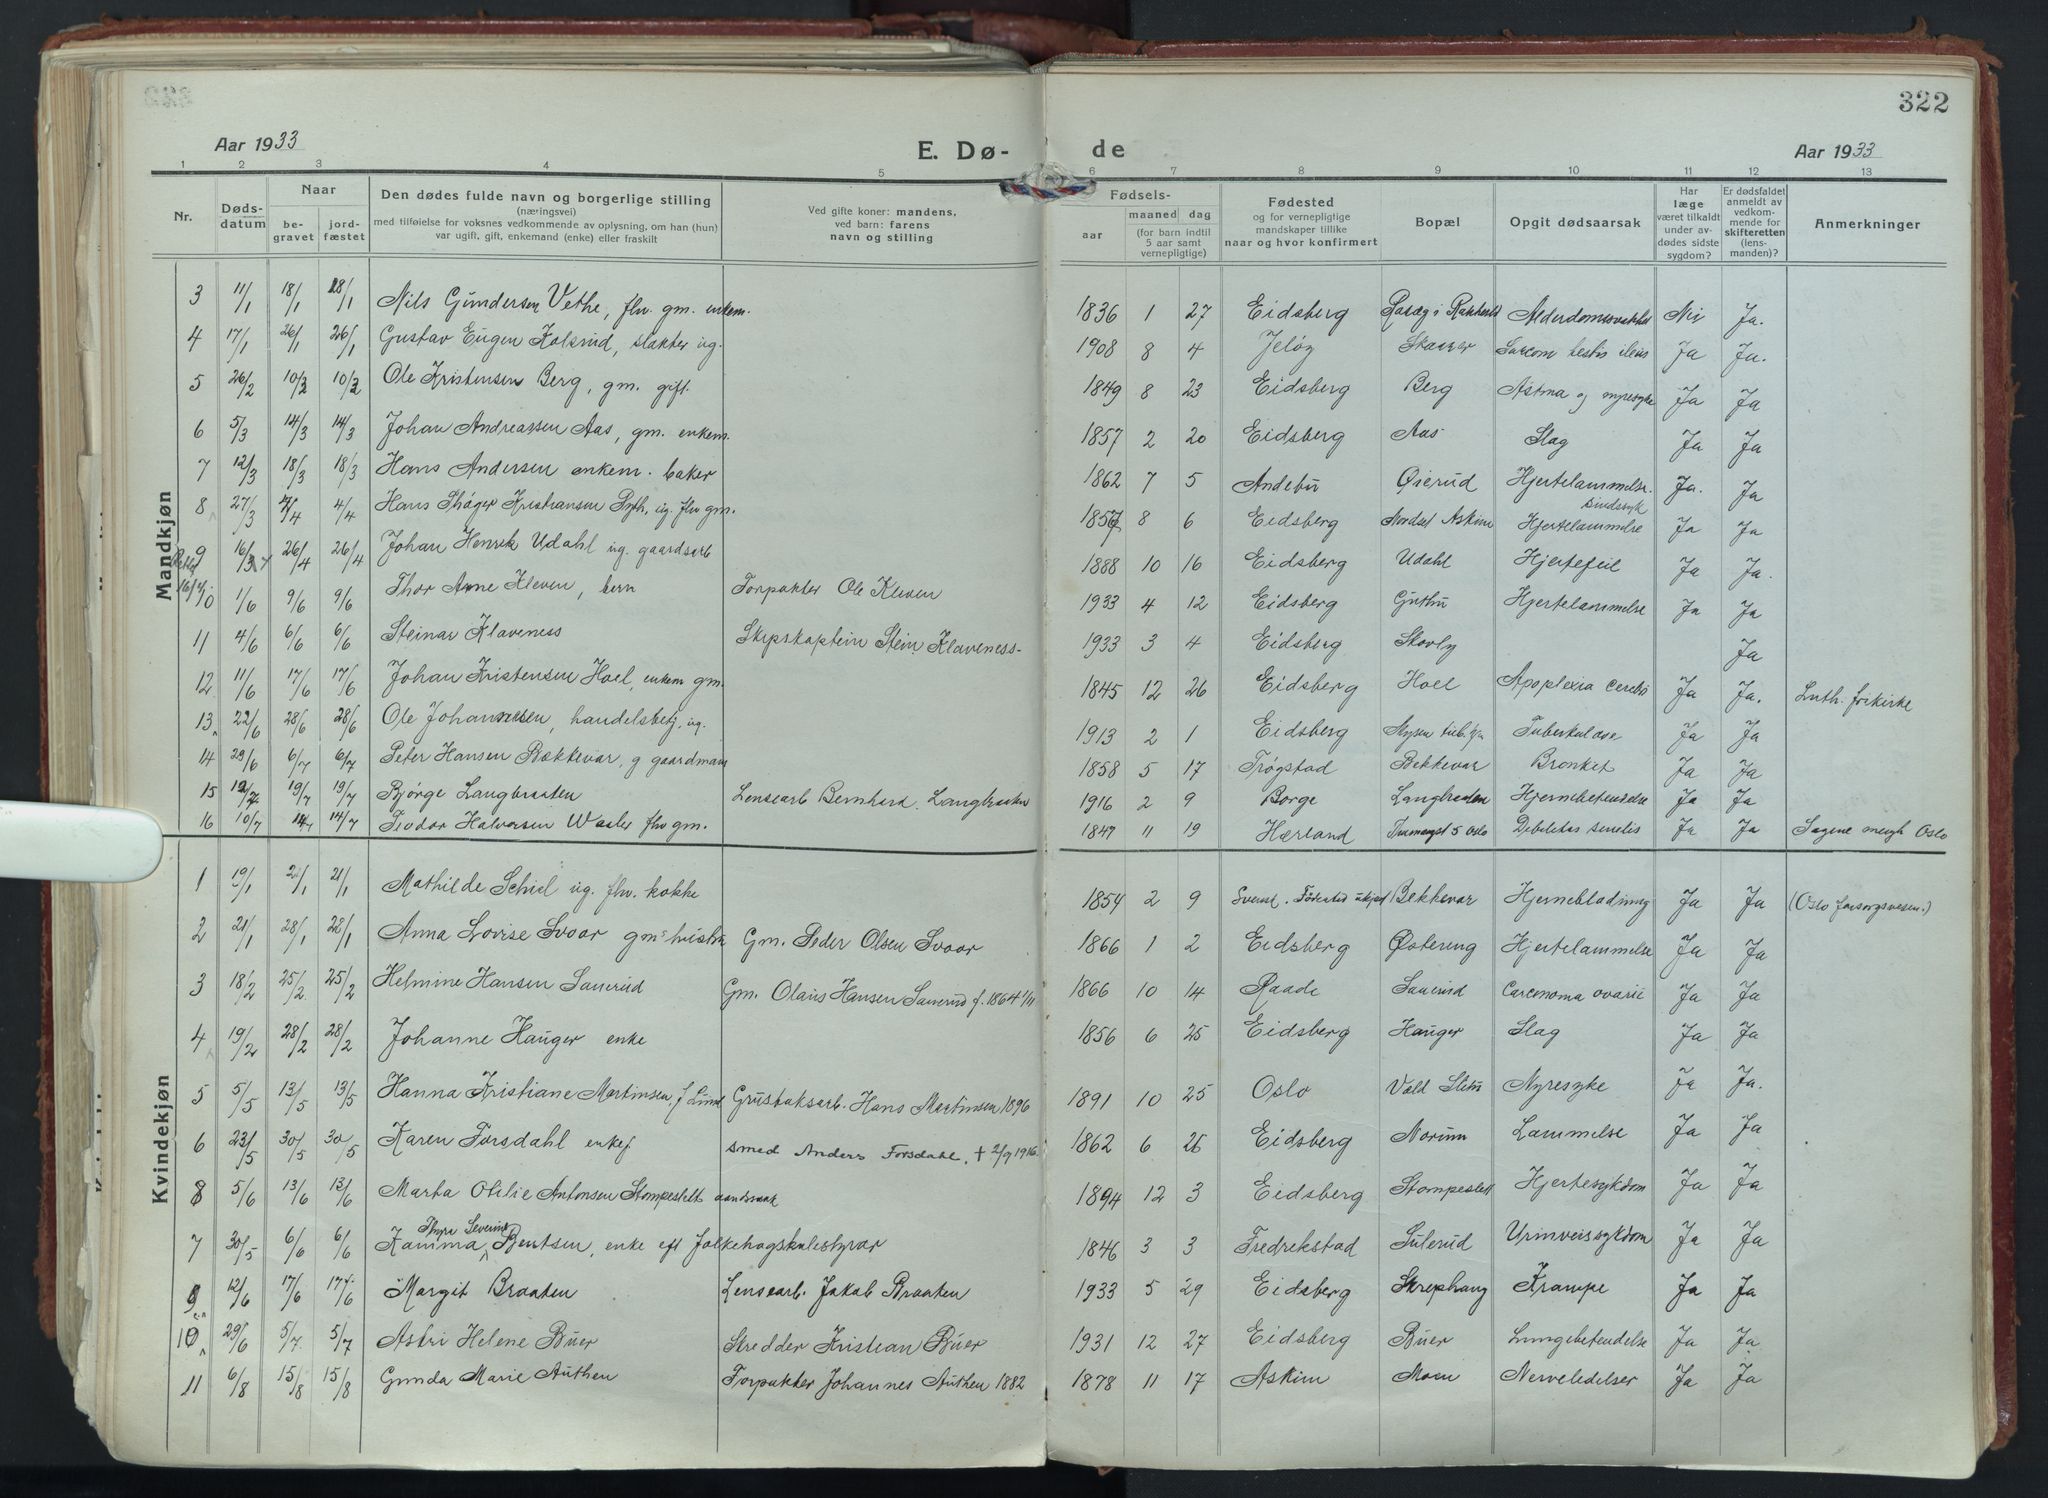 322
Aar 1933 E. Dø- de Aar 1933
1 2 3 4 5 6 7 8 9 10 11 12 13
Nr. Døds-datum Naar begravet jordfæstet Den dødes fulde navn og borgerlige stilling (næringsvei) med tilføielse for voksnes vedkommende av oplysning, om han (hun) var ugift, gift, enkemand (enke) eller fraskilt Ved gifte koner: mandens, ved barn: farens navn og stilling Fødsels- aar maaned dag (for barn indtil 5 aar samt vernepligtige) Fødested og for vernepligtige mandskaper tillike naar og hvor konfirmert Bopæl Opgit dødsaarsak Har læge været tilkaldt under avdødes sidste sygdom? Er dødsfaldet anmeldt av vedkommende for skifteretten (lensmanden)? Anmerkninger
Mandkjøn
3 11/1 18/1 18/1 Nils Gundersen Vethe, flv. gm. enkem. 1836 1 27 Eidsberg Alderdomssvakhet Nei Ja.
4 17/1 26/1 26/1 Gustav Eugen Kolsrud, slakter ug. 1908 8 4 Jeløy Skaarer Sarcom testis ileus Ja Ja.
5 26/2 10/3 10/3 Ole Kristensen Berg, gm. gift. 1849 8 23 Eidsberg Berg Astma og nyresyke Ja Ja
6 5/3 14/3 14/3 Johan Andreassen Aas, gm. enkem. 1857 2 20 Eidsberg Aas Slag Ja Ja
7 12/3 18/3 18/3 Hans Andersen enkem. baker 1862 7 5 Andebu Øierud Hjertelammelse. sindssyk Ja. Ja
8 27/3 4/4 4/4 Hans Thøger Kristiansen ug. flv gm. 1857 8 6 Eidsberg Nordset Askim Hjertelammelse Ja Ja
9 16/3 26/4 26/4 Johan Henrik Udahl ug. gaardsarb 1888 10 16 Eidsberg Udahl Hjertefeil Ja Ja.
10 1/6 9/6 9/6 Thor Arne Kleven, barn Forpakter Ole Kleven 1933 4 12 Eidsberg Guthu Hjertelammelse Ja Ja
11 4/6 6/6 6/6 Steinar Klaveness Skipskaptein Stein Klaveness- 1933 3 4 Eidsberg Skovly Ja
12 11/6 17/6 17/6 Johan Kristensen Hoel, enkem gm. 1845 12 26 Eidsberg Hoel Apoplexia cerebri Ja Ja. Luth. frikirke
13 22/6 28/6 28/6 Ole Johannesen, handelsbetj. ug. 1913 2 1 Eidsberg Mysen tub. Tuberkulose Ja Ja
14 29/6 6/7 6/7 Peter Hansen Bækkevar, g gaardmann 1858 5 17 Trøgstad Bekkevar Bronket Ja Ja
15 12/7 19/7 19/7 Bjørge Langbraaten Lensearb Bernhard Langbraaten 1916 2 9 Borge Langbraaten Hjernebetendelse Ja Ja
16 10/7 14/7 14/7 Teodor Halvorsen Waaler flv gm. 1847 11 19 Hærland 5 Oslo Debilitas senilis Ja Ja Sagene mengh Oslo
Kvindekjøn
1 19/1 21/1 21/1 Mathilde Schiel ug. flv. kokke 1854 2 9 Svensk. Fødested ukjent Bekkevar Hjerneblødning Ja Ja (Oslo forsorgsvesen.)
2 21/1 28/1 28/1 Anna Lovise Svoor gm's hustru Gm. Peder Olsen Svoor 1866 1 2 Eidsberg Østereng Hjertelammelse Ja Ja
3 18/2 25/2 25/2 Helmine Hansen Sauerud Gm. Olaus Hansen Sauerud f. 1864 1/11 1866 10 14 Raade Sauerud Carcenoma ovarii Ja Ja
4 19/2 28/2 28/2 Johanne Hauger enke 1856 6 25 Eidsberg Hauger Slag Ja Ja
5 5/5 13/5 13/5 Hanna Kristiane Martinsen, f Lund Grustaksarb. Hans Martinsen 1896 1891 10 25 Oslo Vold Slitu Nyresyke Ja Ja.
6 23/5 30/5 30/5 Karen Forsdahl enkef smed Anders Forsdahl. † 2/9 1916. 1862 6 25 Eidsberg Norum Lammelse Ja Ja
8 5/6 13/6 13/6 Marta Otilie Antonsen Stompeslett aandssvak 1894 12 3 Eidsberg Stompeslett Hjertesykdom Ja Ja
7 30/5 6/6 6/6 Kamma Thyra Severine Bentsen, enke eft folkehøgskulestyrar 1846 3 3 Fredrekstad Sulerud Urinveissykdom Ja Ja
9 12/6 17/6 17/6 Margit Braaten Lensearb. Jakob Braaten 1933 5 29 Eidsberg Skrephaug Krampe Ja Ja
10 29/6 5/7 5/7 Astri Helene Buer Skredder Kristian Buer 1931 12 27 Eidsberg Buer Lungebetendelse Ja Ja
11 6/8 15/8 15/8 Gunda Marie Authen Forpakter Johannes Authen 1882 1878 11 17 Askim Moen Nerveledelser Ja Ja